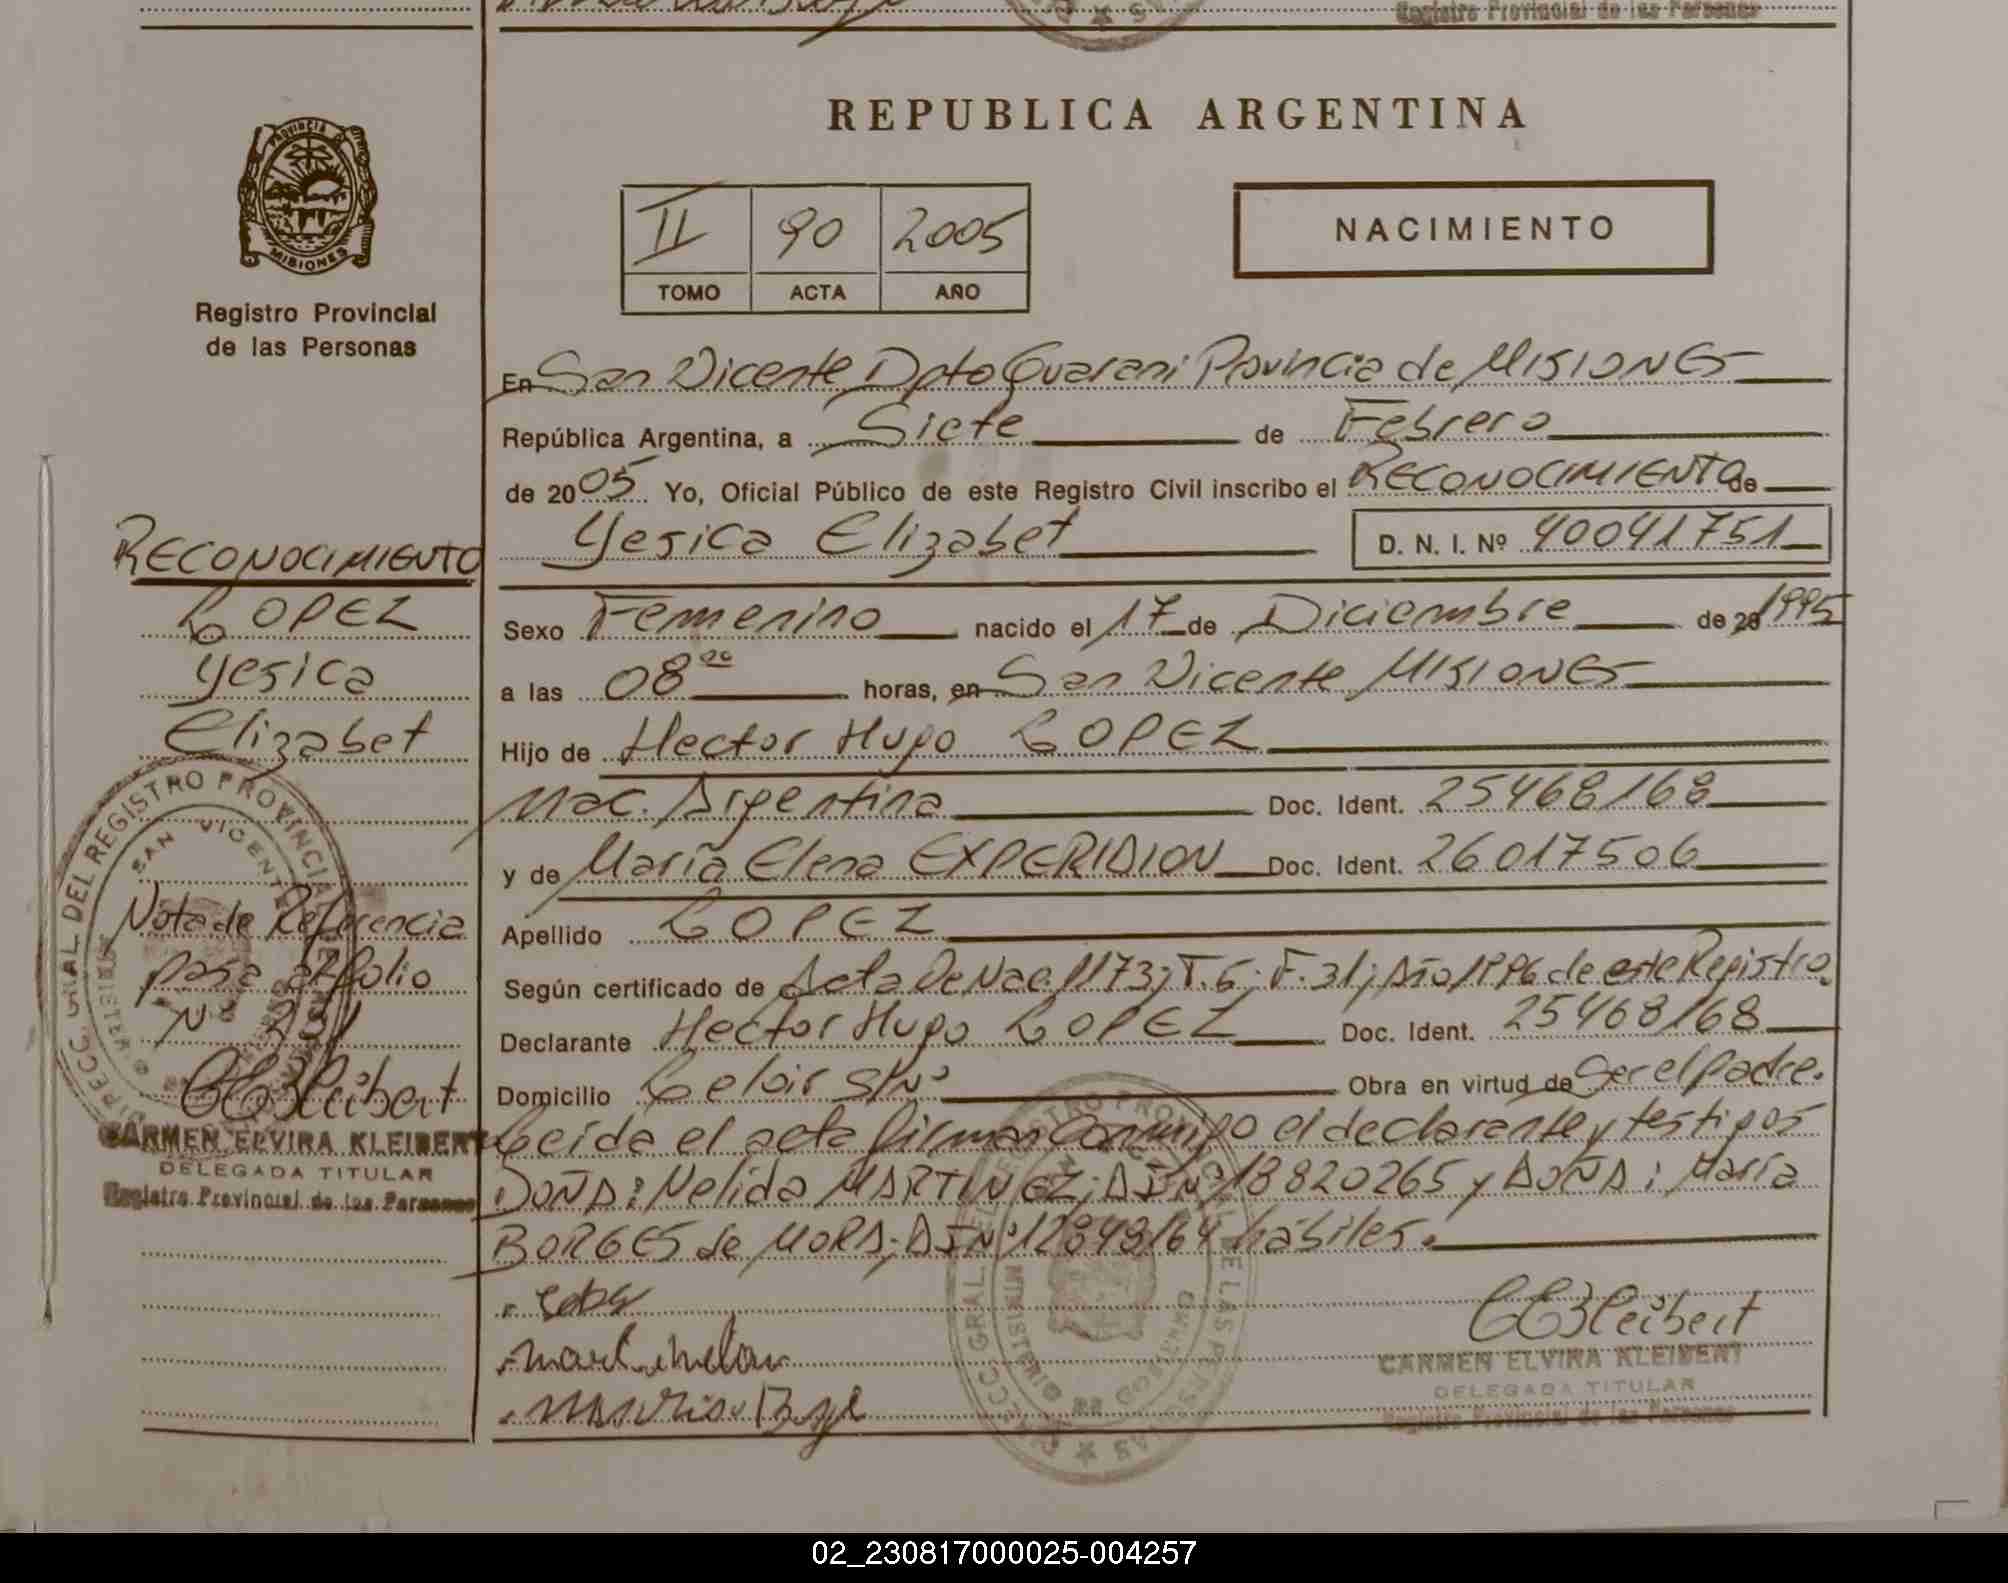 Registro Provincial de las Personas
REPUBLICA ARGENTINA
PROVINCIA DE
MISIONES
Registro Provincial
de las Personas
II 90 2005
TOMO ACTA AÑO
NACIMIENTO
En San Vicente Dpto Guarani Provincia de MISIONES
República Argentina, a Siete de Febrero
de 2005 Yo, Oficial Público de este Registro Civil inscribo el RECONOCIMIENTO de
Yesica Elizabet D. N. I. Nº 40041751
Sexo Femenino nacido el 17 de Diciembre de 20 1995
a las 08 horas, en San Vicente MISIONES
Hijo de Hector Hugo LOPEZ
Nac. Argentina Doc. Ident. 25468168
y de María Elena EXPERIDION Doc. Ident. 26017506
Apellido LOPEZ
Según certificado de Acta De Nac. 1173; T. 6; F. 31; Año 1996 de este Registro.
Declarante Hector Hugo LOPEZ Doc. Ident. 25468168
Domicilio Leloir S/Nº Obra en virtud de Ser el padre.
Leída el acta firman Conmigo el declarante y testigos
DOÑA: Nelida MARTINEZ; DNI Nº 18820265 y DOÑA: María
BORGES de MORA; DNI Nº 12848164 hábiles.
CEKleibert
CARMEN ELVIRA KLEIBERT
DELEGADA TITULAR
Registro Provincial de las Personas
RECONOCIMIENTO
LOPEZ
Yesica
Elizabet
DIRECC. GRAL. DEL REGISTRO PROVINCIAL
SAN VICENTE
Nota de Referencia
pasa al folio
Nº 231
CEKleibert
CARMEN ELVIRA KLEIBERT
DELEGADA TITULAR
Registro Provincial de las Personas
02_230817000025-004257